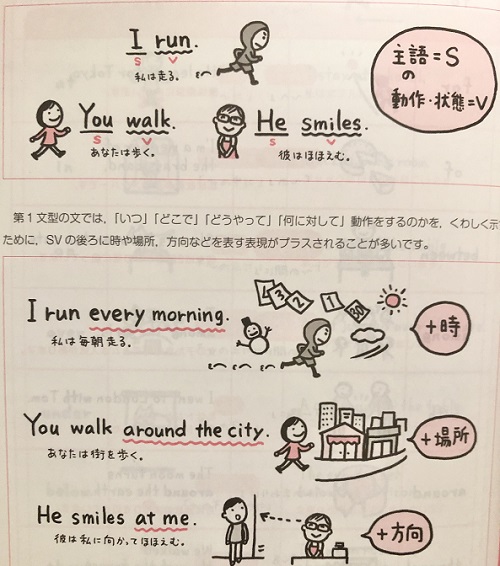 I run.
S V
私は走る。
主語=S
の
動作・状態=V
You walk.
S V
あなたは歩く。
He smiles.
S V
彼はほほえむ。
第1文型の文では,「いつ」「どこで」「どうやって」「何に対して」動作をするのかを, くわしく示
ために, SVの後ろに時や場所, 方向などを表す表現がプラスされることが多いです。
I run every morning.
私は毎朝走る。
1 30
+時
You walk around the city.
あなたは街を歩く。
+場所
He smiles at me.
彼は私に向かってほほえむ。
+方向